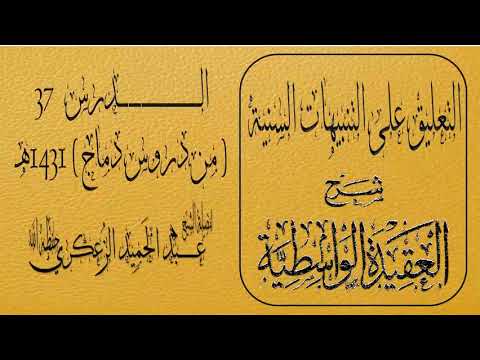 التعليق على التنبيهات السنية
شرح
العقيدة الواسطية
الـــدرس 37
( من دروس دماج ) 1431هـ
لفضيلة الشيخ
عبد الحميد الزعكري حفظه الله